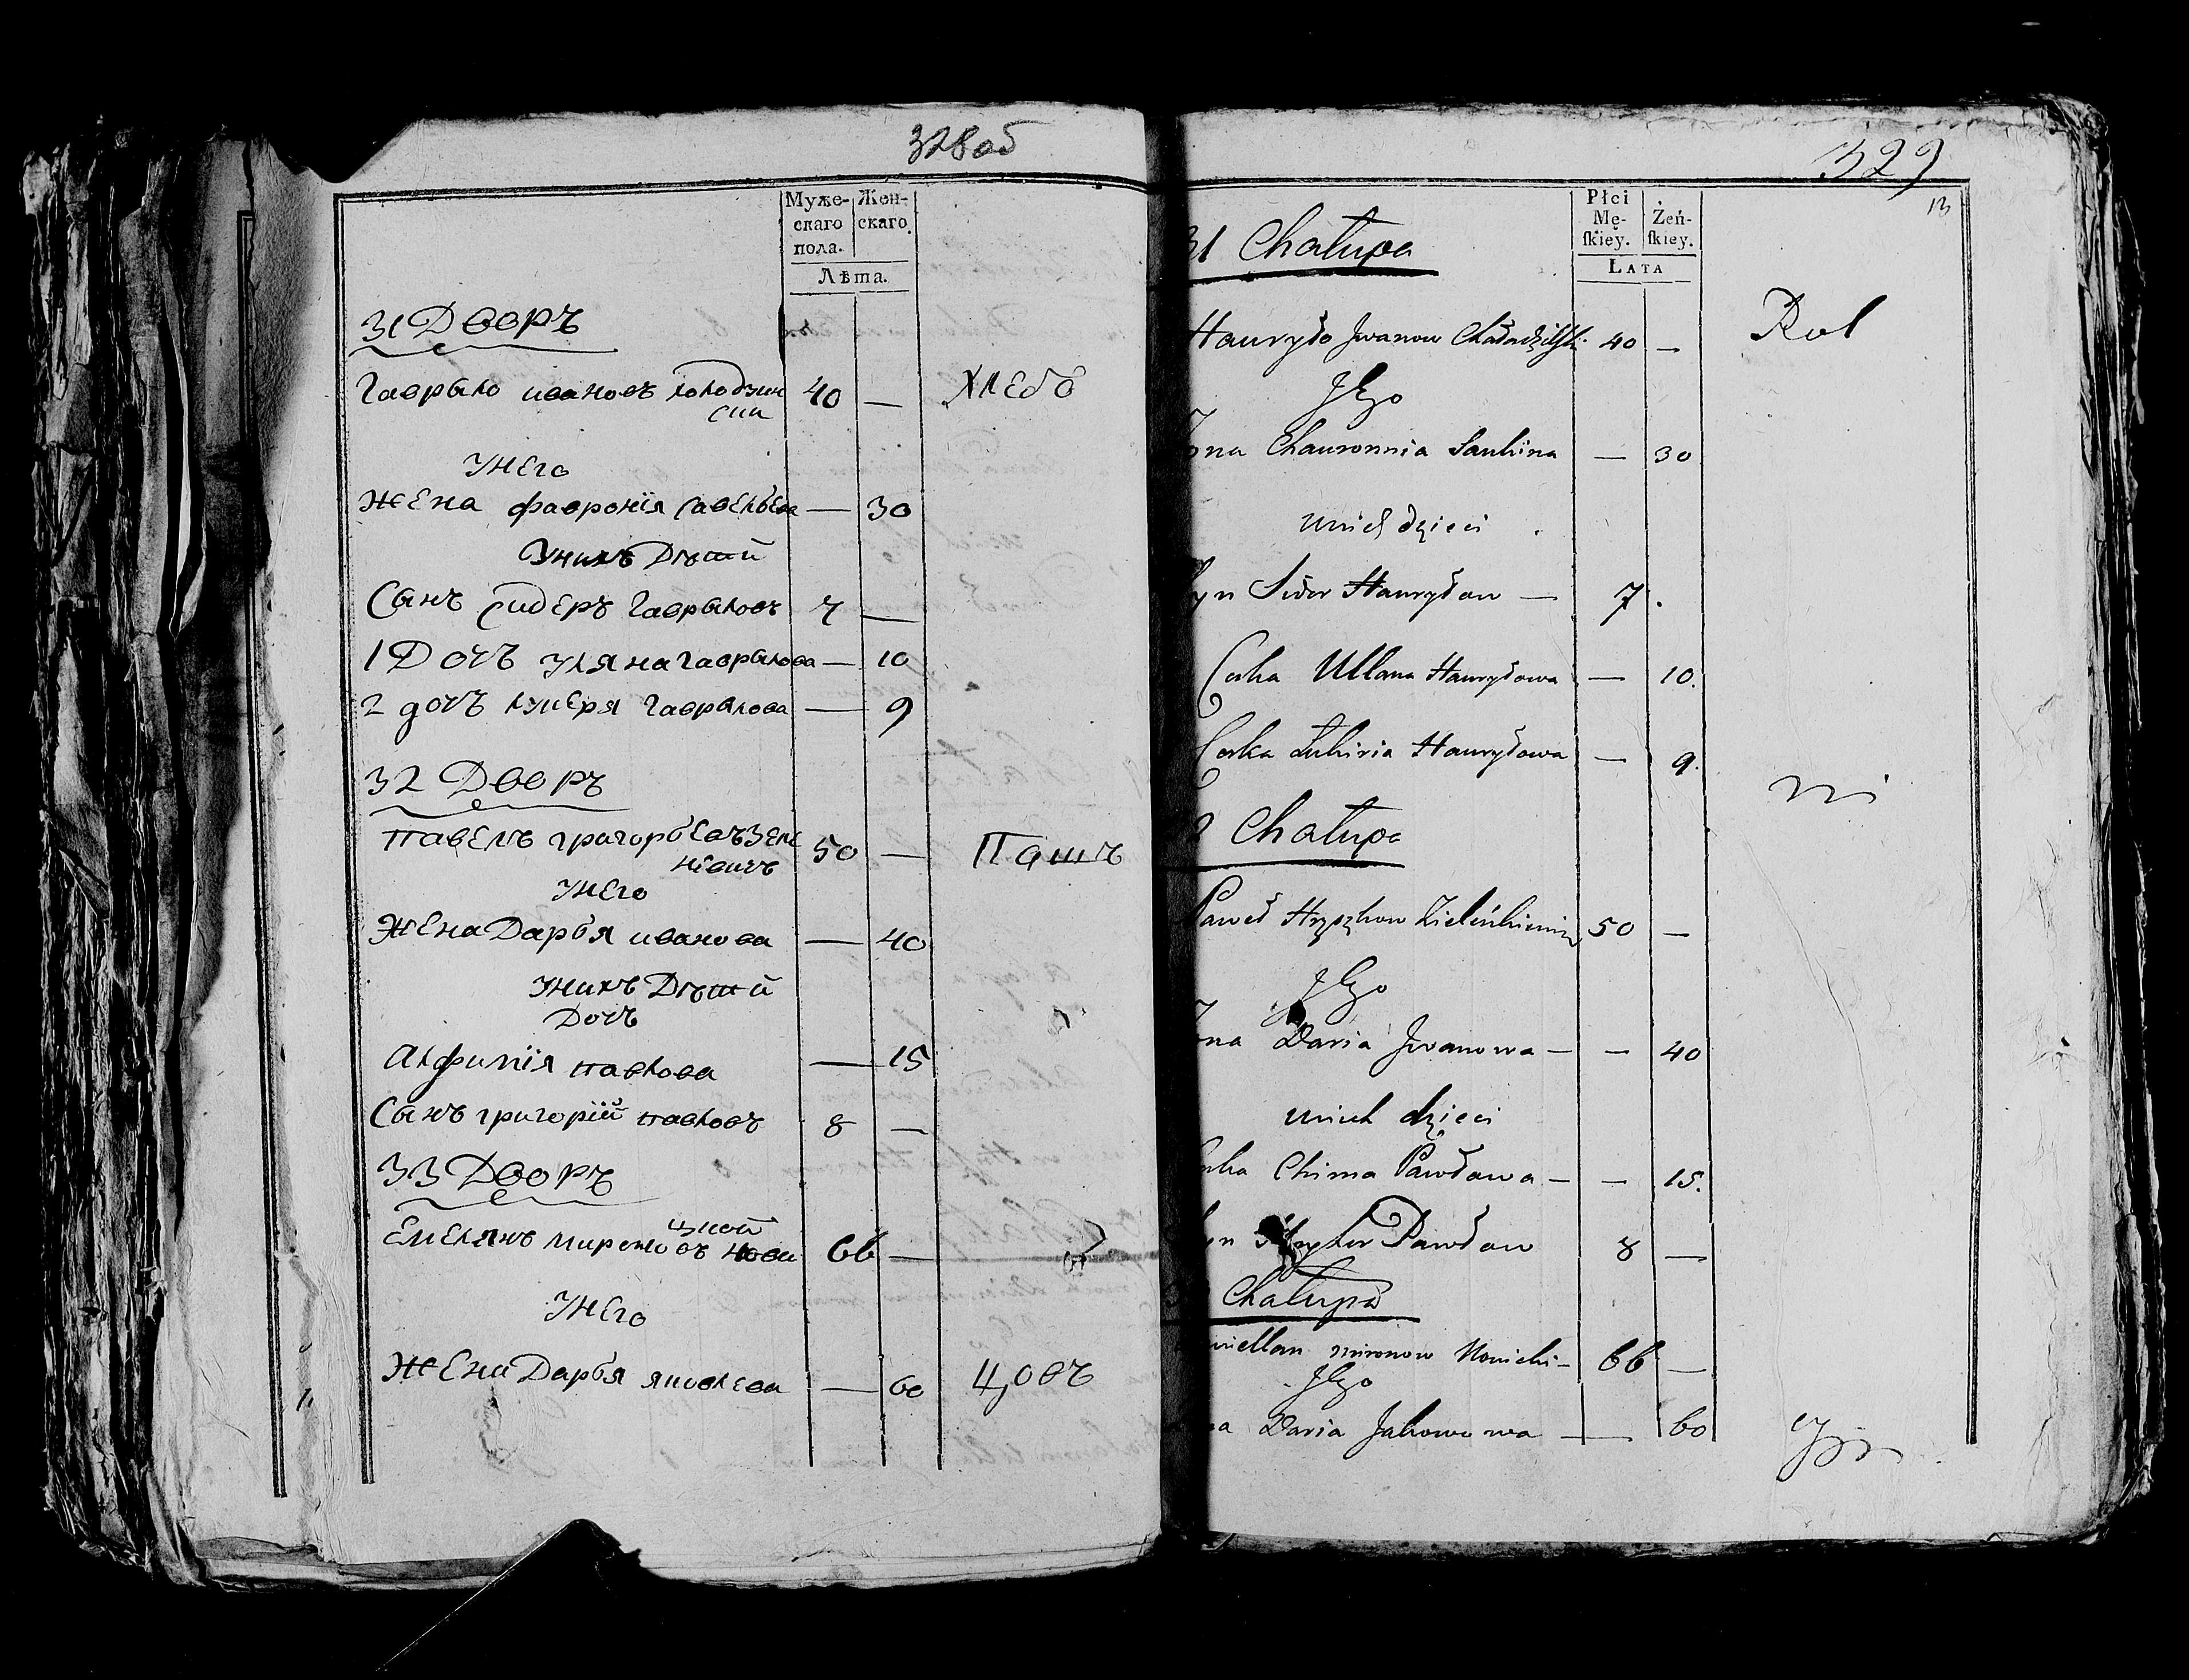 328об
Муже-
скаго
пола.
Жен-
скаго.
Лѣта.
31 Дворъ
Гаврыло ивановъ холодзин
ски 40 — Хлебо
унего
Жена фаврониiя савельева — 30
Унихъ Дѣтй
Сынъ сидеръ Гаврыловъ 7 —
1 Дочъ уляна гаврылова — 10
2 дочъ лукеря гаврылова — 9
32 Дворъ
павелъ григорьевъ Зелe
нiевичъ 50 — Пашъ
унего
Жена Дарья иванова — 40
унихъ Дѣтй
Дочъ
Алфимiя павлова — 15
Сынъ григорiй павловъ 8 —
33 Дворъ
Емелянъ мироновъ нови
цкой 66 —
унего
Жена Дарья яковлева — 60 Цовъ
329
13
Płci
Mę-
ſkiey.
Żeń-
ſkiey.
Lata
31 Chałupa
Hauryło Jwanow 40 — Rol
Jego
ona Chauronnia Saukina — 30
unich dzieci
yn Sidor Hauryłow — 7.
Corka Ullana Hauryłowa — 10.
Corka Łukiria Hauryłowa — 9. ni
2 Chałupa
Paweł Hryszkow Zieleńkiewicz 50 —
Jego
ona Daria Jwanowa — — 40
unich dzieci
orka Chima Pawłowa — — 15.
yn Pawłow 8 —
Chałupa
miellan mironow Nowicki — 66 —
Jego
na Daria Jakowowa — 60